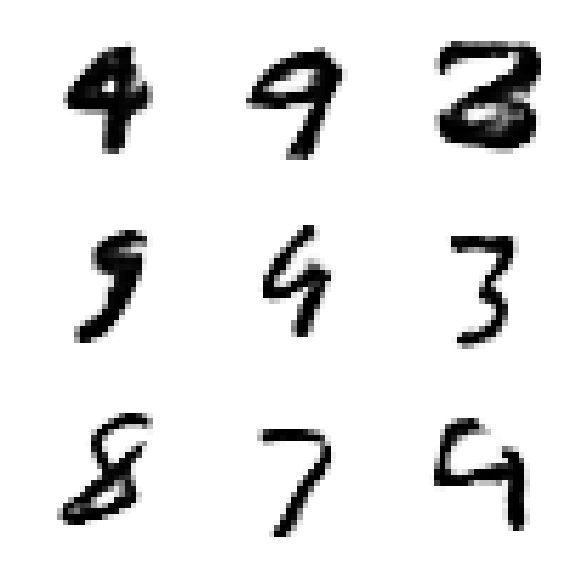 4 9 8
9 4 3
8 7 9